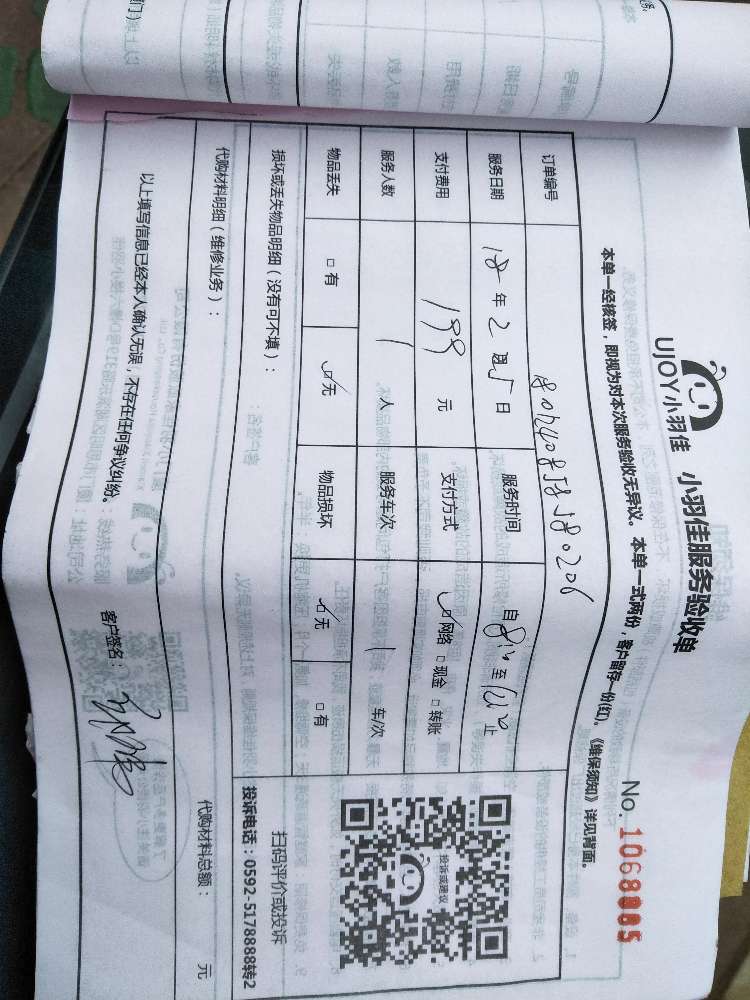 UJOY小羽佳 小羽佳服务验收单
No. 1068005
本单一经核签，即视为对本次服务验收无异议。本单一式两份，客户留存一份(红)。《维保须知》详见背面。
订单编号
服务日期 18年2月5日 服务时间 自 至 止
支付费用 199 元 支付方式 ☑网络 □现金 □转账
服务人数 1 人 服务车次 1 车/次
物品丢失 □有 ☑无 物品损坏 ☑无 □有
投诉或建议
扫码评价或投诉
投诉电话：0592-5178888转2
损坏或丢失物品明细（没有可不填）：
代购材料明细（维修业务）： 代购材料总额： 元
以上填写信息已经本人确认无误，不存在任何争议纠纷。 客户签名：